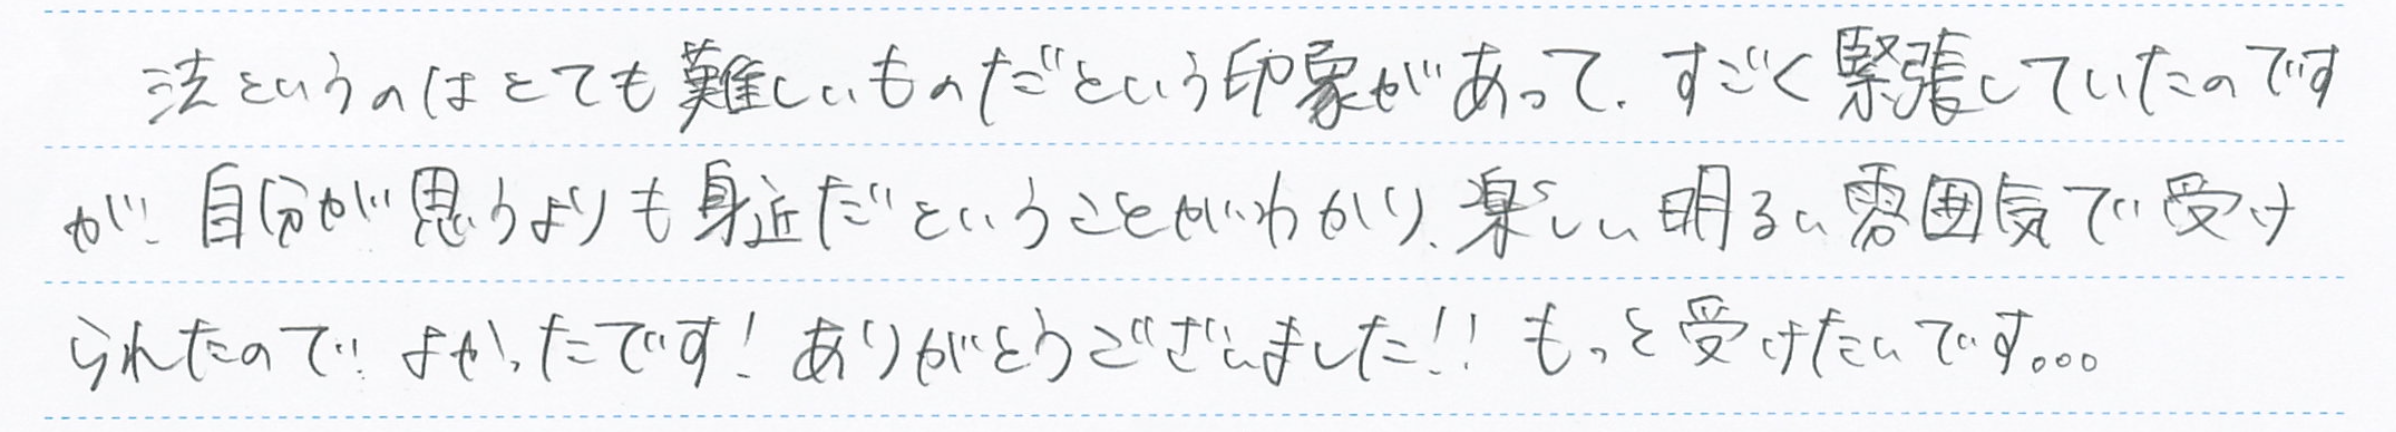 法というのはとても難しいものだという印象があって、すごく緊張していたのです
が、自分が思うよりも身近だということがわかり、楽しい明るい雰囲気で受け
られたので、よかったです！ありがとうございました！！もっと受けたいです。。。